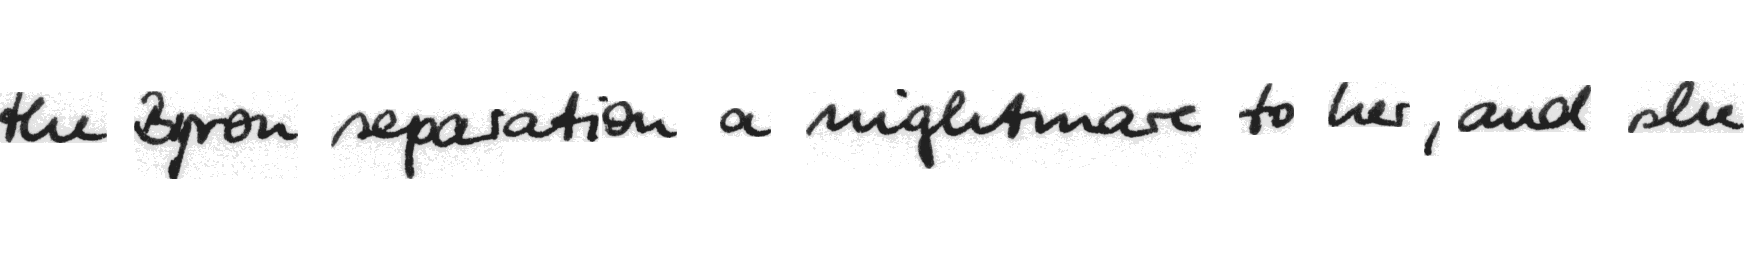 the Byron separation a nightmare to her, and she